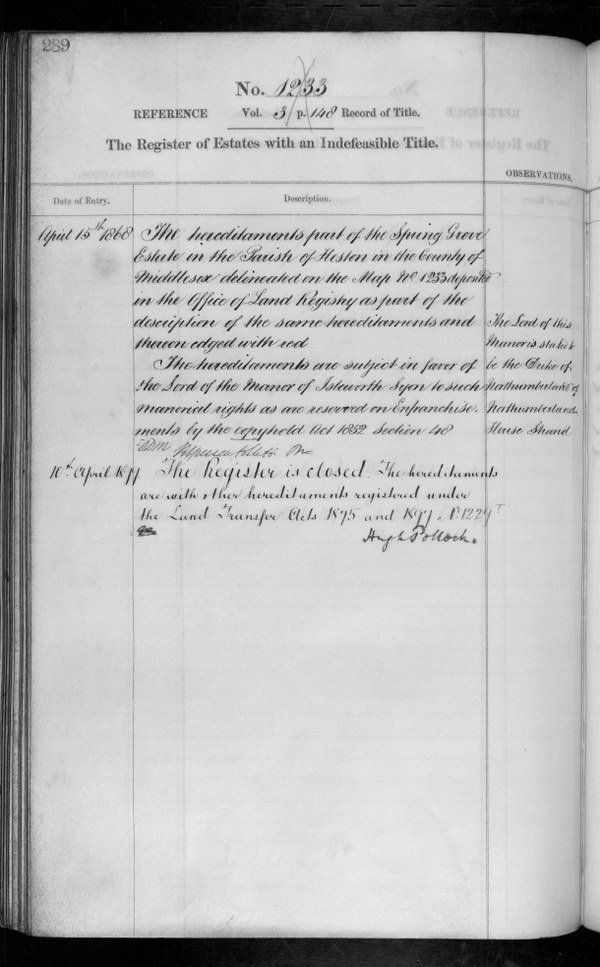 289
No. 1233
REFERENCE Vol. 3 p. 148 Record of Title.
The Register of Estates with an Indefeasible Title.
OBSERVATIONS.
Date of Entry. Description.
April 15th 1868 The hereditaments part of the Spring Grove
Estate in the Parish of Heston in the County of
Middlesex delineated on the Map No 1233 deposited
in the Office of Land Registry as part of the
description of the same hereditaments and
thereon edged with red
The hereditaments are subject in favor of
the Lord of the Manor of Isleworth Syon to such
manorial rights as are reserved on Enfranchise-
ments by the copyhold Act 1852 Section 48
The Lord of this
Manor is stated to
be the Duke of
Northumberland of
Northumberland
House Strand
10th April 1899 The Register is closed. The hereditaments
are with other hereditaments registered under
the Land Transfer Acts 1875 and 1897 No. 1229
Hugh Pollock.